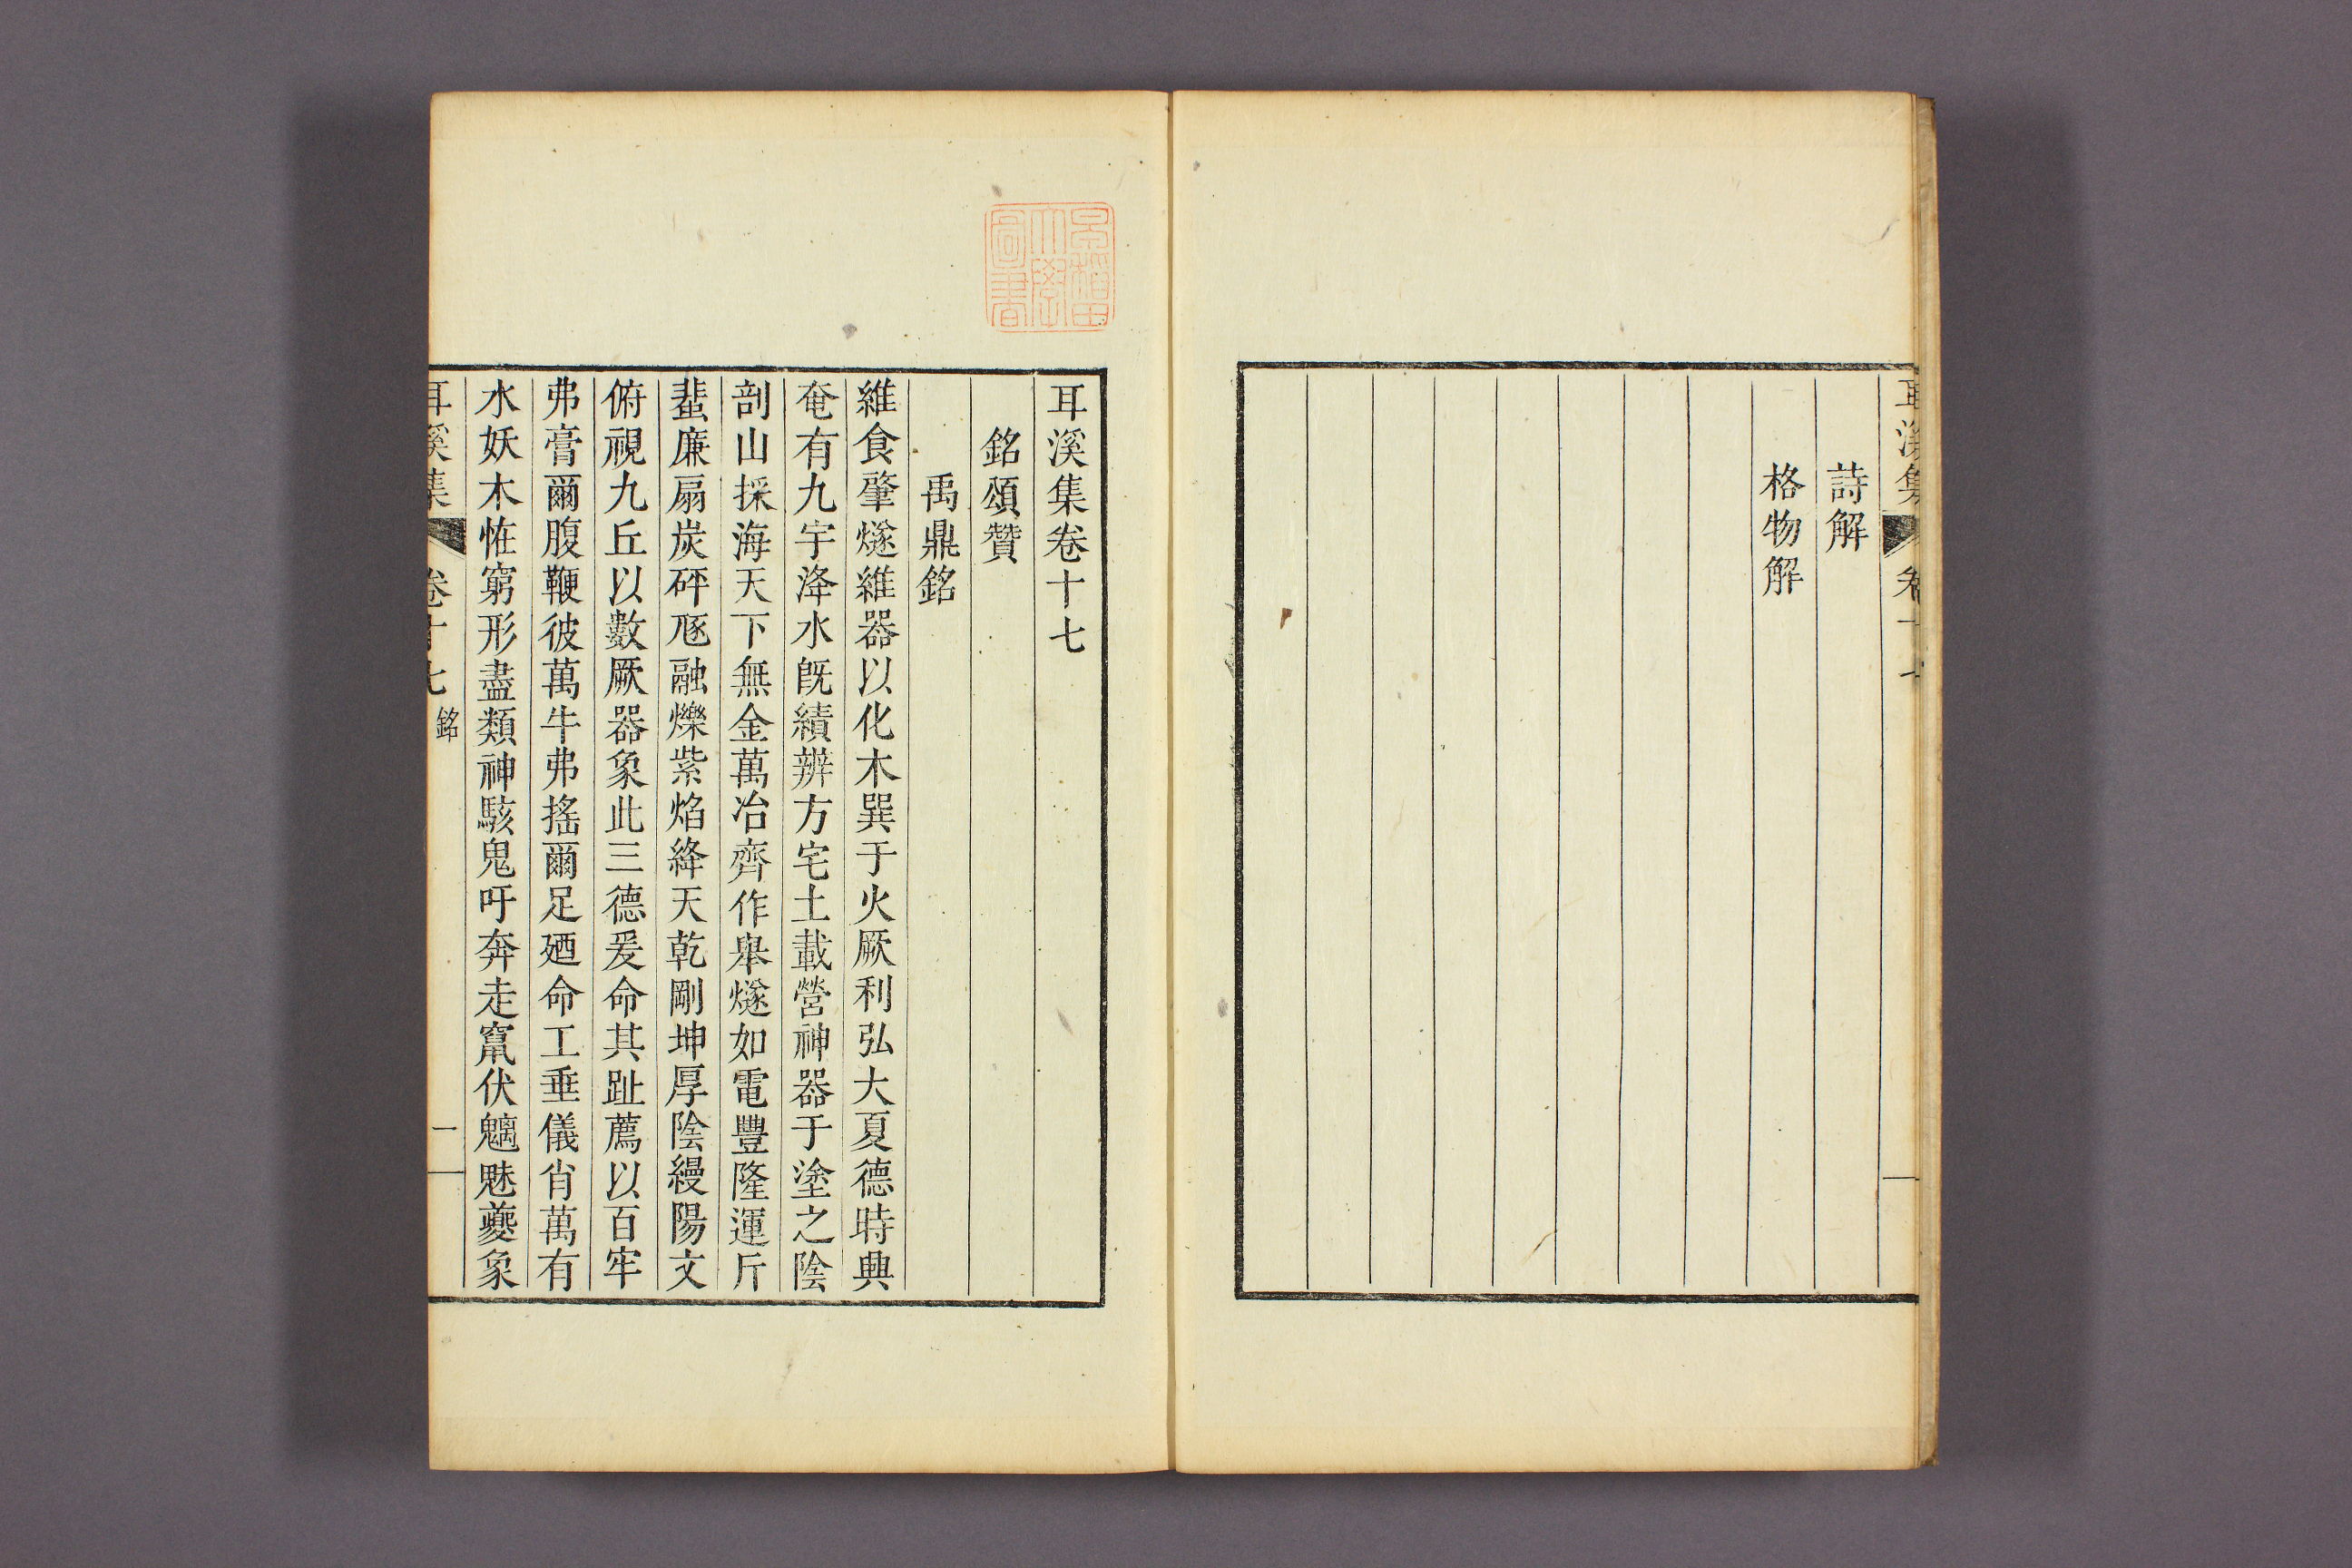 耳溪集
卷十七
詩解
格物解
早稻田
大學
圖書
耳溪集卷十七
銘頌贊
禹鼎銘
維食肇燧維器以化木巽于火厥利弘大夏德時興
奄有九宇洚水旣績辨方宅土載營神器于塗之陰
剖山採海天下無金萬冶齊作舉燧如電豐隆運斤
蜚廉扇炭砰豗融爍紫焰絳天乾剛坤厚陰縵陽文
俯視九丘以數厥器象此三德爰命其趾薦以百牢
弗膏爾腹鞭彼萬牛弗搖爾足廼命工垂儀肖萬有
水妖木恠窮形盡類神駭鬼吁奔走竄伏魑魅夔象
耳溪集
卷十七
銘
一